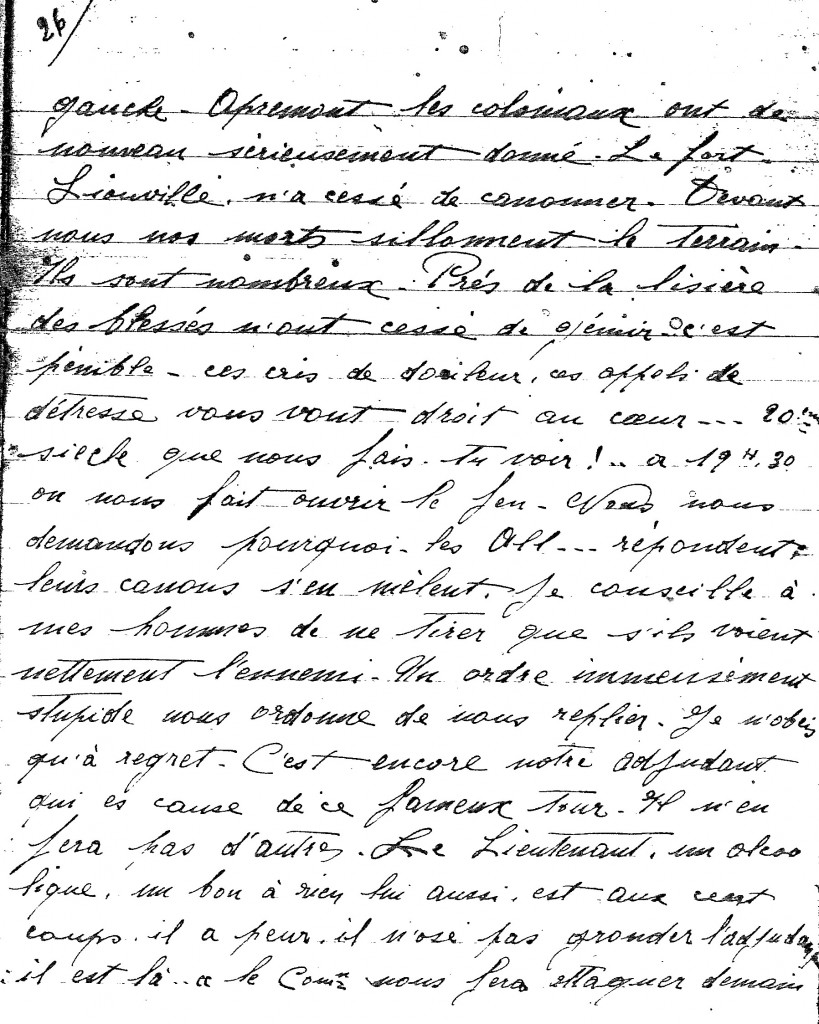 26/
gauche - Apremont les coloniaux ont de
nouveau sérieusement donné - Le fort
Liouville, n'a cessé de canonner - Devant
nous nos morts sillonnent le terrain -
Ils sont nombreux - Près de la lisière
des blessés n'ont cessé de gémir - c'est
pénible - ces cris de douleur, ces appels de
détresse vous vont droit au cœur --- 20ème
siècle que nous fais-tu voir ! .. a 19 H. 30
on nous fait ouvrir le feu - Nous nous
demandons pourquoi - les All --- répondent,
leurs canons s'en mêlent. Je conseille à
mes hommes de ne tirer que s'ils voient
nettement l'ennemi - Un ordre immensément
stupide nous ordonne de nous replier. Je n'obéis
qu'à regret - C'est encore notre adjudant
qui es cause de ce fameux tour - Il n'en
fera pas d'autres. Le Lieutenant, un alcoo
lique, un bon à rien lui aussi, est aux cent
coups. il a peur. il n'ose pas gronder l'adjudant
il est là .. le nous fera attaquer demain